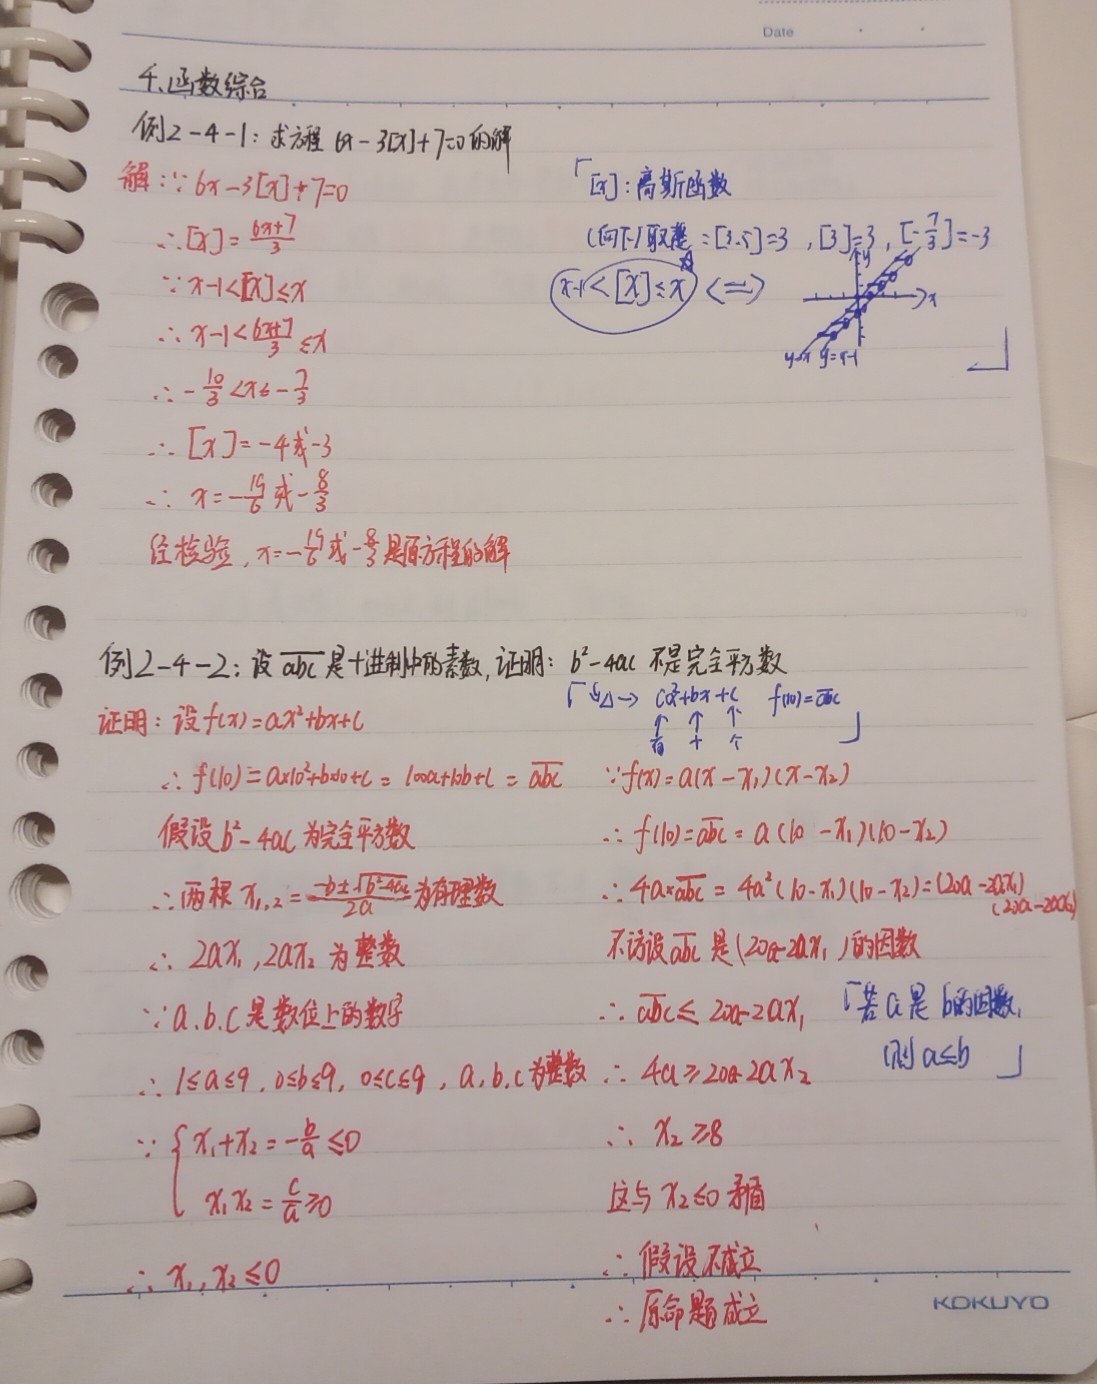 Date
4.函数综合
例2-4-1: 求方程 6x-3[x]+7=0的解
解: ∵ 6x-3[x]+7=0
∴ [x] = (6x+7)/3
∵ x-1<[x]≤x
∴ x-1<(6x+7)/3≤x
∴ -10/3<x≤-7/3
∴ [x]=-4或-3
∴ x=-19/6或-8/3
经检验, x=-19/6或-8/3是原方程的解
「[x]: 高斯函数
(向下)取整: [3.5]=3, [3]=3, [-7/3]=-3
x-1<[x]≤x <=>
y
x
y=x y=x-1
」
例2-4-2: 设 abc 是十进制中的素数, 证明: b²-4ac 不是完全平方数
「 → x²+bx+c f(10)=abc
百 十 个 」
证明: 设f(x)=ax²+bx+c
∴ f(10)=a×10²+b×10+c=100a+10b+c=abc
假设b²-4ac为完全平方数
∴ 两根 x₁,₂=(-b±√(b²-4ac))/2a 为有理数
∴ 2ax₁, 2ax₂ 为整数
∵ a.b.c是数位上的数字
∴ 1≤a≤9, 0≤b≤9, 0≤c≤9, a,b,c为整数
∵ { x₁+x₂=-b/a≤0
x₁x₂=c/a≥0
∴ x₁, x₂≤0
∵ f(x)=a(x-x₁)(x-x₂)
∴ f(10)=abc=a(10-x₁)(10-x₂)
∴ 4a×abc=4a²(10-x₁)(10-x₂)=(20a-2ax₁)
(20a-2ax₂)
不访设abc是(20a-2ax₁)的因数
∴ abc≤20a-2ax₁
「若a是b的因数,
则a≤b 」
∴ 4a≥20a-2ax₂
∴ x₂≥8
这与 x₂≤0 矛盾
∴ 假设不成立
∴ 原命题成立
KOKUYO